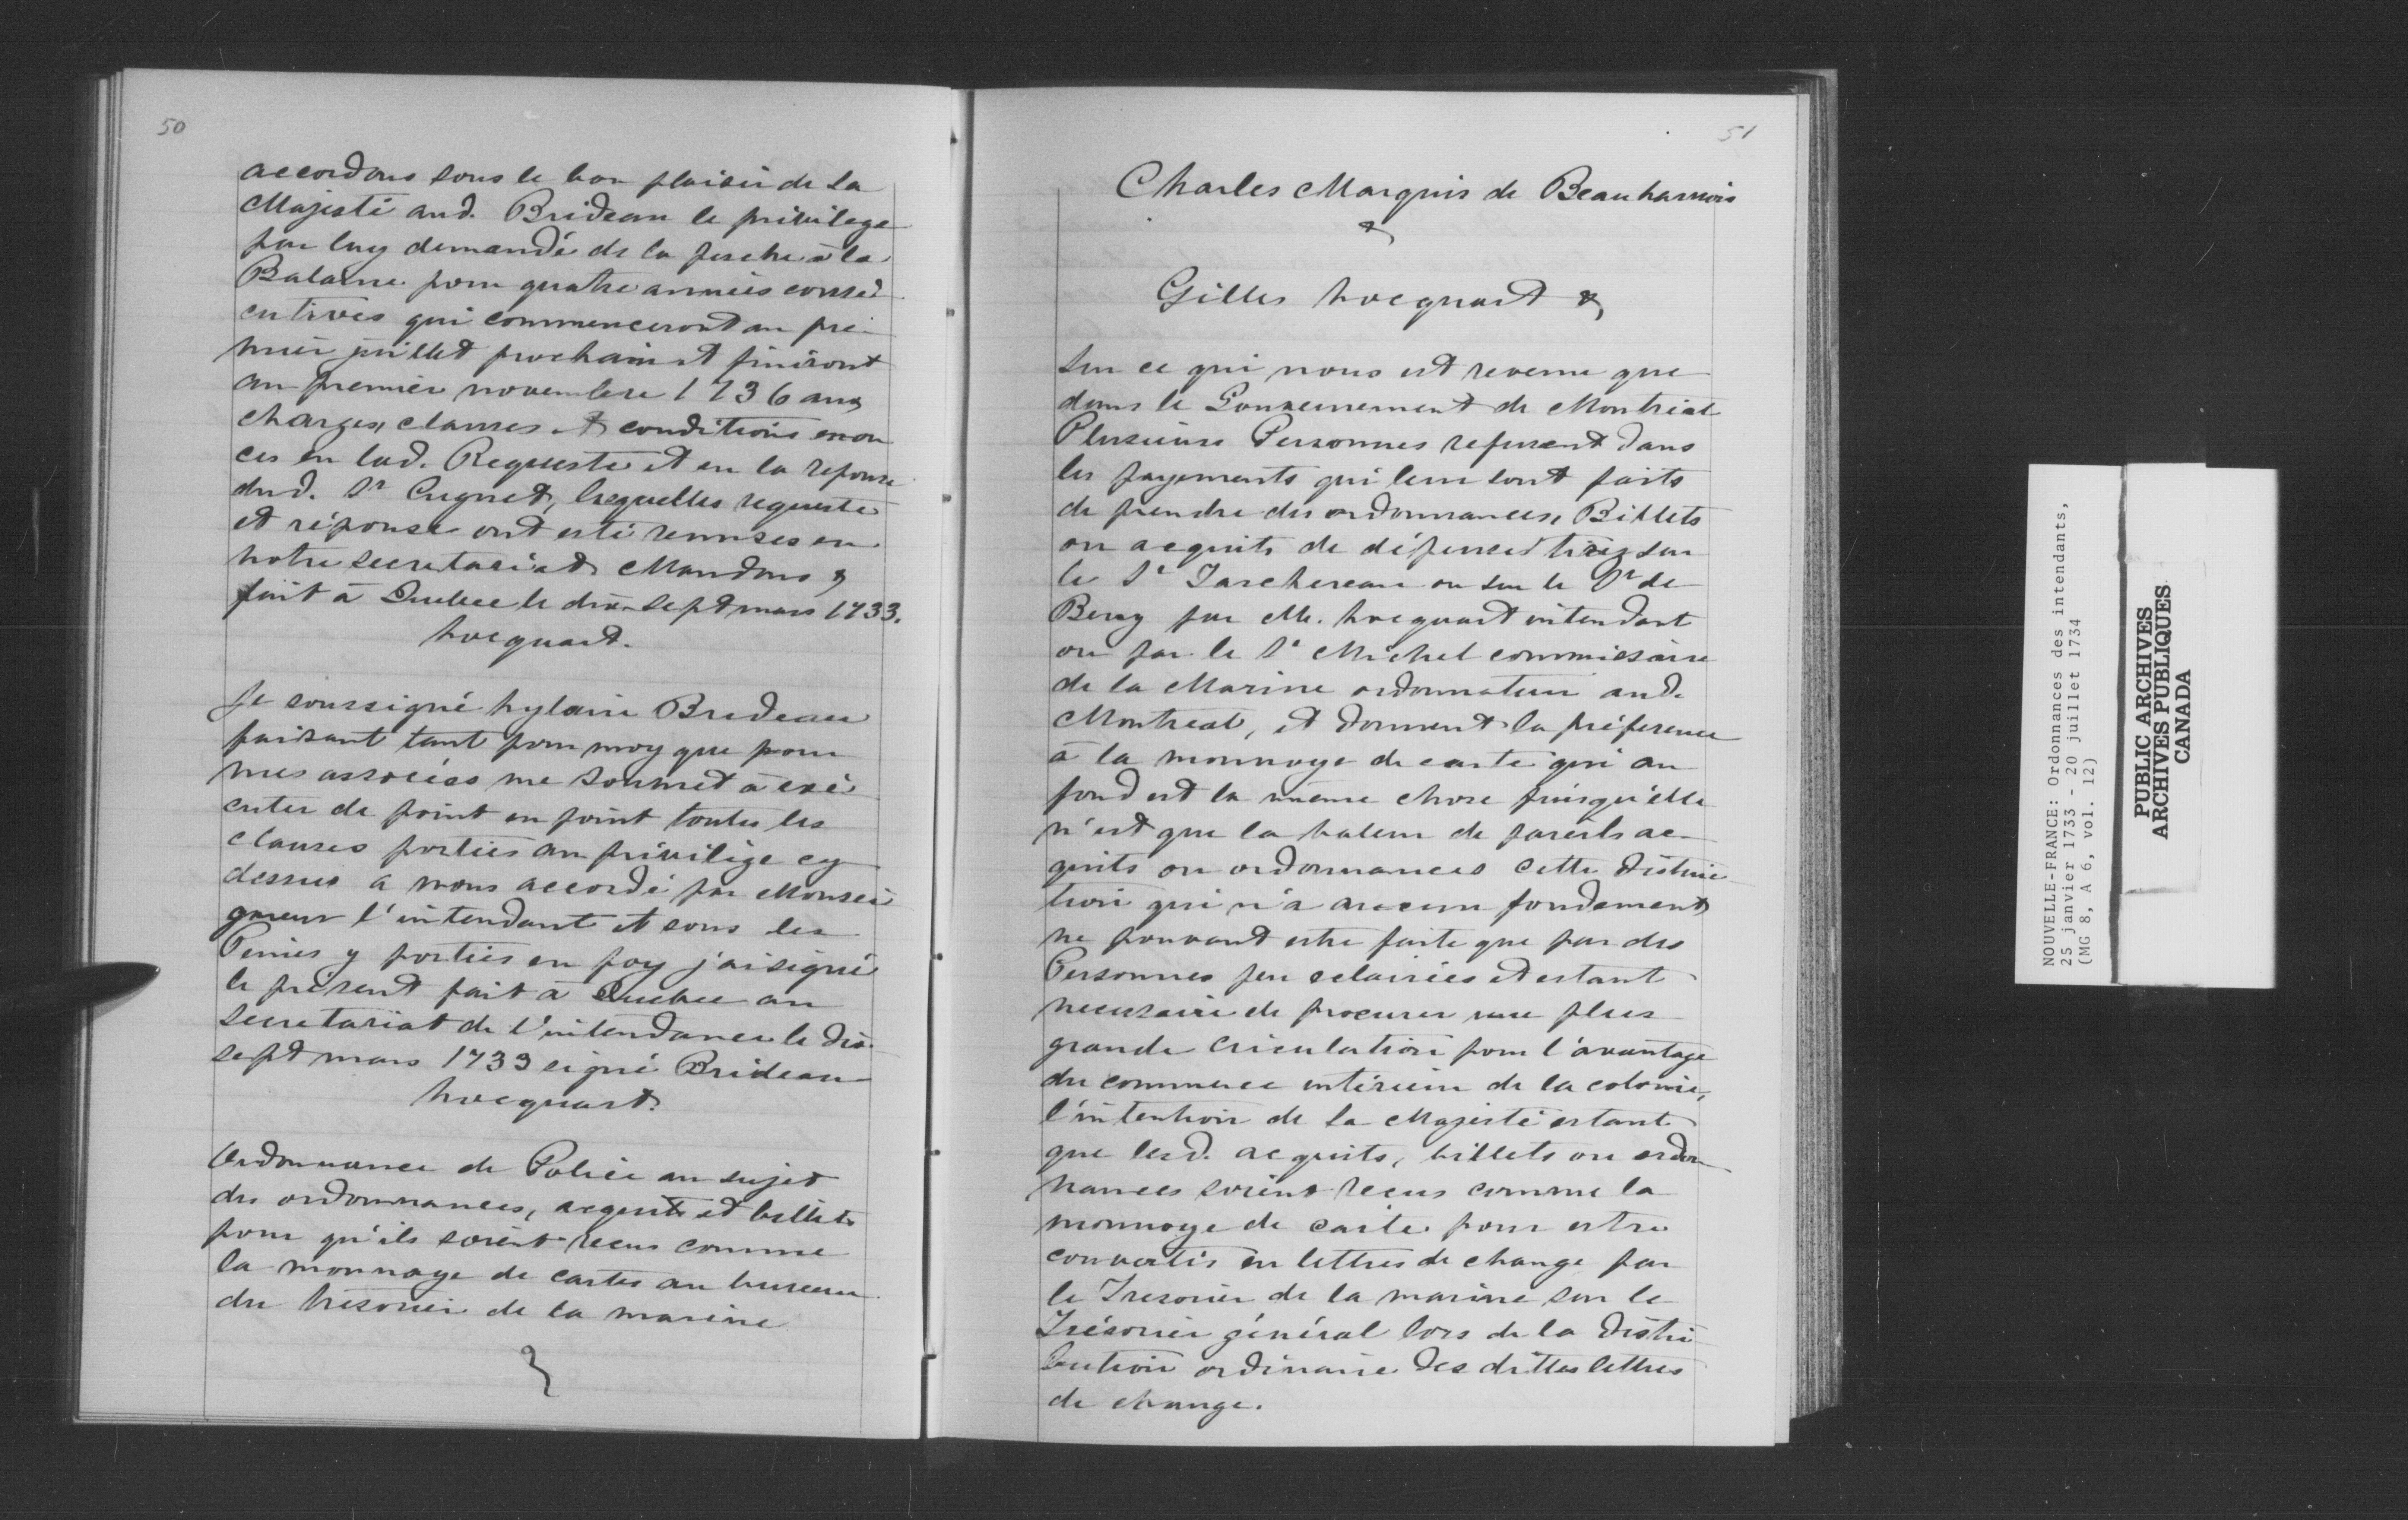 50
accordons sous le bon plaisir de Sa
Majesté aud. Brideau le privilege
par luy demandé de la pesche à la
Balaine pour quatre années consé
cutives qui commenceront au pre-
mier juillet prochain et finiront
au premier novembre 1736 aux
charges, clauses et conditions enon
ces en lad. Requeste et en la reponse
dud. Sr Cugnet, lesquelles requeste
et réponse ont esté remises en
notre secretariat Mandons &
fait à Quebec le dix-sept mars 1733.
hocquart.
Je soussigné hylaire Brideau
faisant tant pour moy que pour
mes associés me soumet à exé
cuter de point en point toutes les
clauses portées au privilège cy
dessus a nous accordé par Monsei
gneur l'intendant et sous les
Peines y portées en foy j'ai signé
le présent fait à Quebec au
secretariat de l'intendance le dix
sept mars 1733 signé Brideau
hocquart.
Ordonnance de Police au sujet
des ordonnances, acquits et billets
pour qu'ils soient recus comme
la monnaye de cartes au bureau
du trésorier de la marine
51
Charles Marquis de Beauharnois
&
Gilles hocquart &
Sur ce qui nous est revenu que
dans le Gouvernement de Montreal
Plusieurs Personnes refusent dans
les payements qui leur sont faits
de prendre des ordonnances, Billets
ou acquits de dépenses tirés sur
le Sr Taschereau ou sur le Sr de
Bercy par M. hocquart intendant
ou par le Sr Michel commissaire
de la Marine ordonnateur aud.
Montreal, et donnent la préference
à la monnoye de carte qui au
fond est la même chose puisqu'elle
n'est que la valeur de pareils ac-
quits ou ordonnances cette distinc
tion qui n'a aucun fondement
ne pouvant estre faite que par des
Personnes peu eclairées et estant
necessaire de procurer une plus
grande circulation pour l'avantage
du commerce intérieur de la colonie,
l'intention de Sa Majesté estant
que lesd. acquits, billets ou ordon
nances soient recus comme la
monnoye de carte pour estre
convertis en lettres de change par
le Tresorier de la marine sur le
Trésorier général lors de la distri
bution ordinaire des dittes lettres
de change.
NOUVELLE-FRANCE: Ordonnances des intendants,
25 janvier 1733 - 20 juillet 1734
(MG 8, A 6, vol. 12)
PUBLIC ARCHIVES
ARCHIVES PUBLIQUES
CANADA